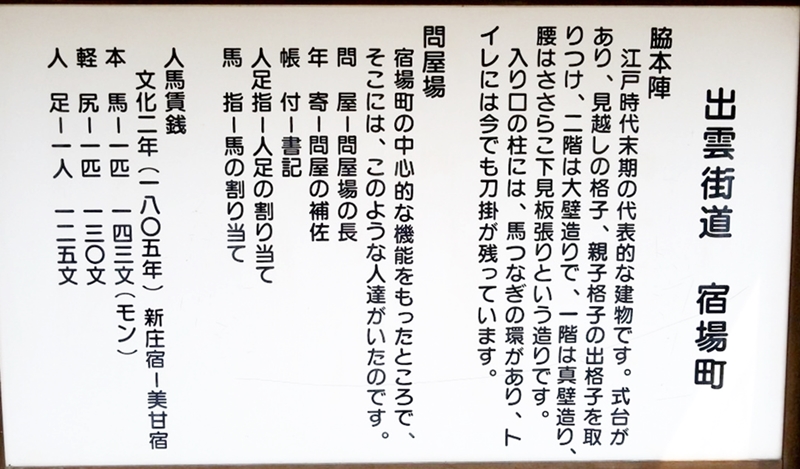 出雲街道　宿場町
脇本陣
江戸時代末期の代表的な建物です。式台が
あり、見越しの格子、親子格子の出格子を取
りつけ、二階は大壁造りで、一階は真壁造り、
腰はささらこ下見板張りという造りです。
入り口の柱には、馬つなぎの環があり、ト
イレには今でも刀掛が残っています。
問屋場
宿場町の中心的な機能をもったところで、
そこには、このような人達がいたのです。
問　屋ー問屋場の長
年　寄ー問屋の補佐
帳　付ー書記
人足指ー人足の割り当て
馬　指ー馬の割り当て
人馬賃銭
文化二年（一八〇五年）　新庄宿ー美甘宿
本　馬ー一匹　一四三文（モン）
軽　尻ー一匹　一三〇文
人　足ー一人　一二五文